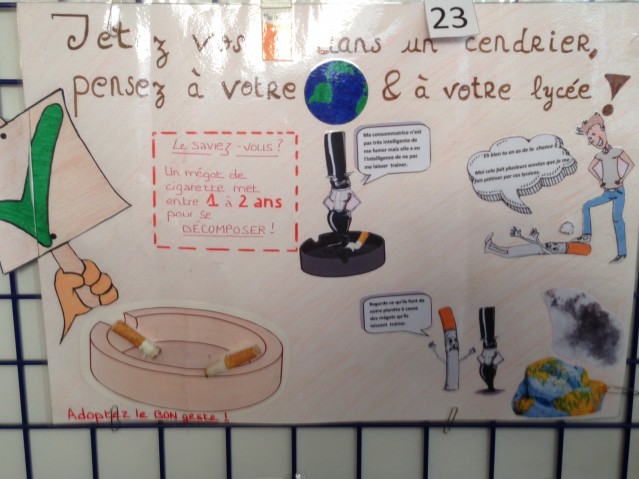 23
Jetez vos dans un cendrier,
pensez à votre & à votre lycée !
Le saviez-vous ?
Un mégot de
cigarette met
entre 1 à 2 ans
pour se
DÉCOMPOSER !
Ma consommatrice n'est
pas très intelligente de
me fumer mais elle a eu
l'intelligence de ne pas
me laisser trainer.
Eh bien tu en as de la chance !
Moi cela fait plusieurs années que je me
fait piétiner par ces lycéens.
Regarde ce qu'ils font de
notre planète à cause
des mégots qu'ils
laissent trainer.
Adoptez le BON geste !